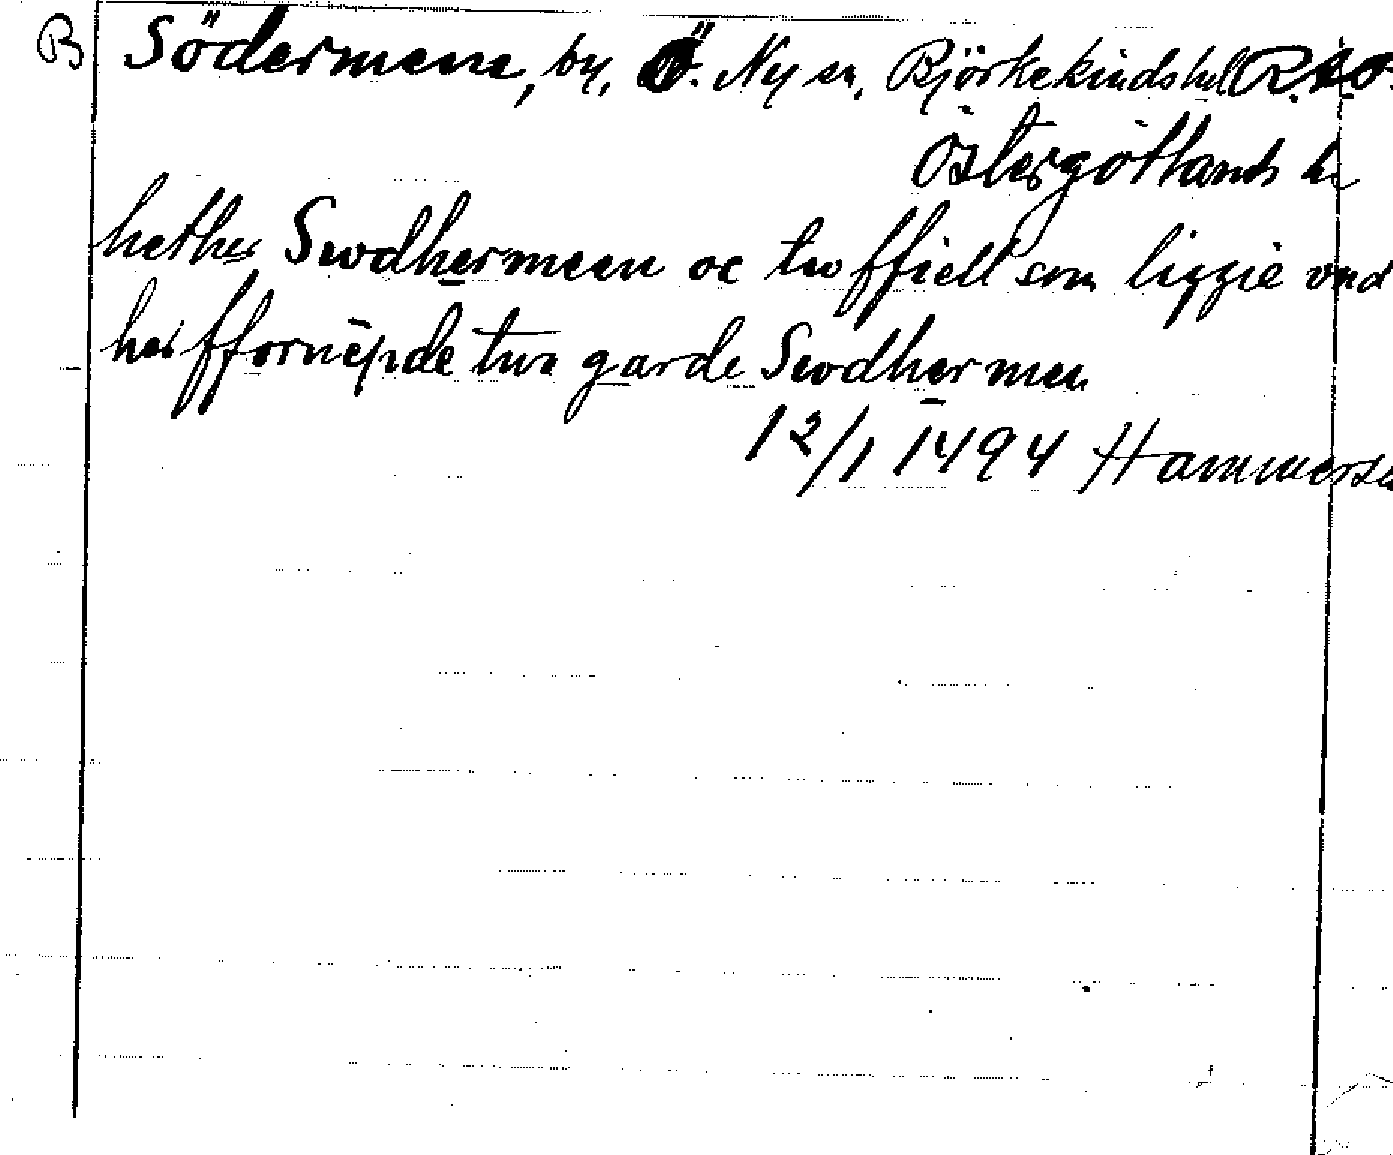 B Södermene, by, Ö. Ny sn, Björkekinds hd R.A.O.
Östergötlands l.
hether Swdhermeen oc tw ffiell som liggie vnd
her ffornēpnde twa garde Swdhermen
12/1 1494 Hammersta